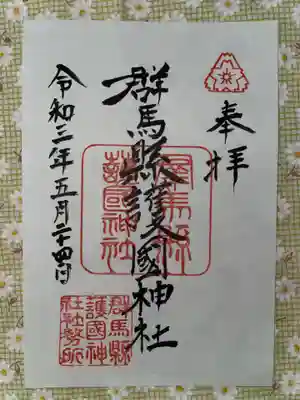 奉拝
群馬縣護國神社
令和三年五月二十四日
群馬縣
護國神社
群馬縣
護國神
社社務所